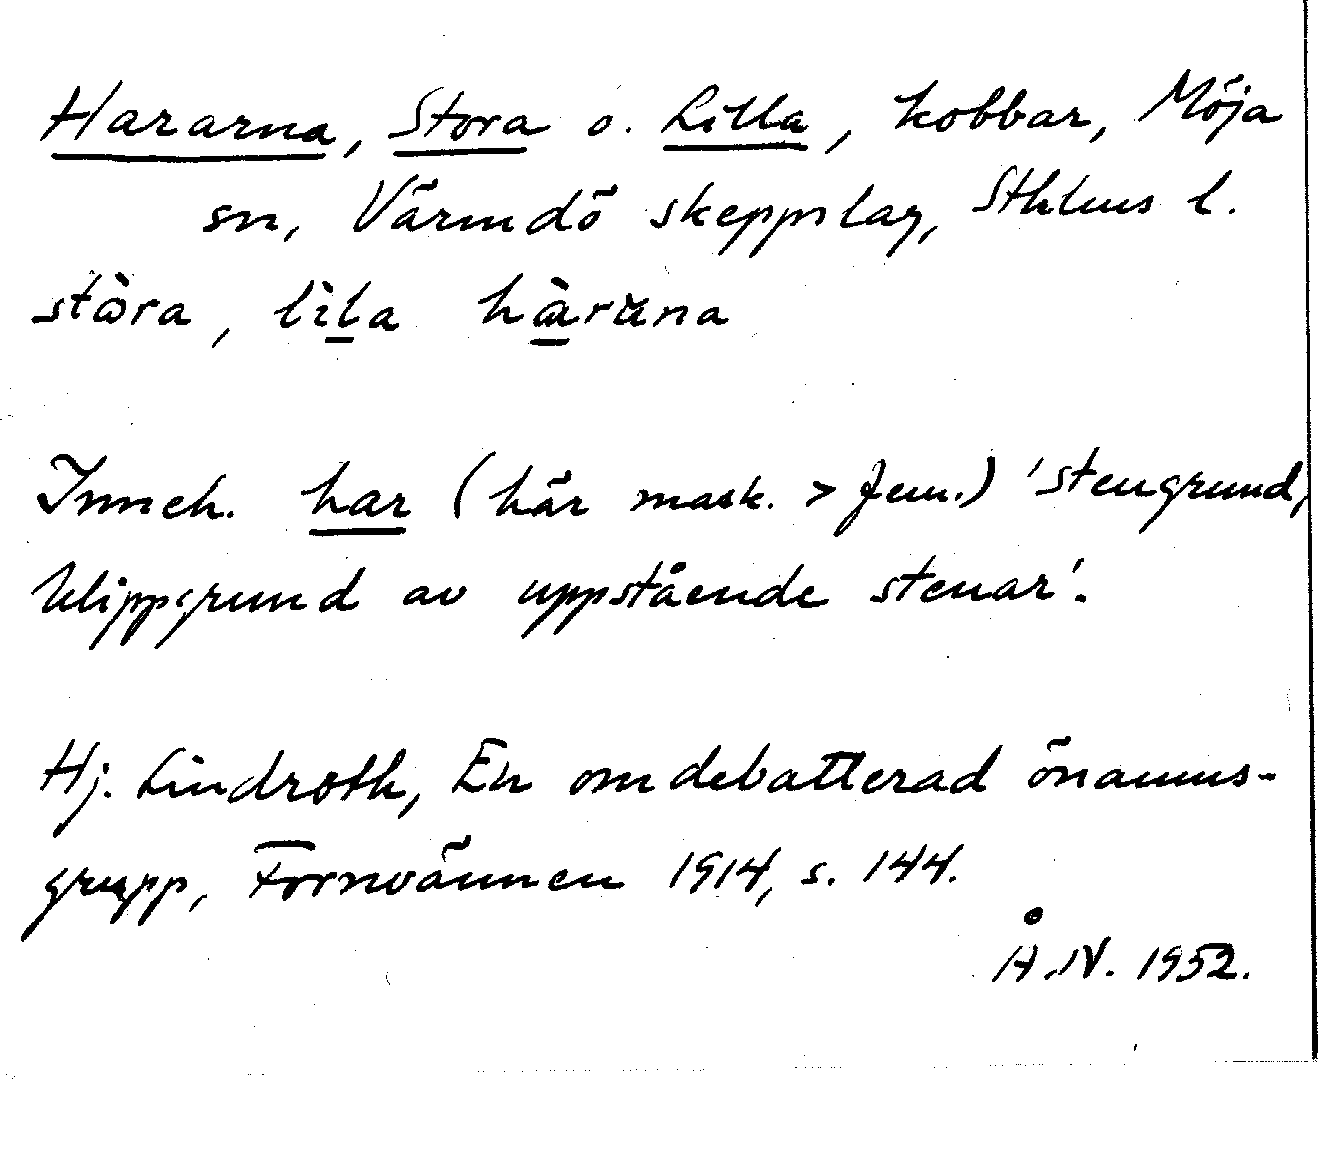 Hararna, Stora o. Lilla, kobbar, Möja
sn, Värmdö skeppslag, Sthlms l.
stòra, lìla hàrana
Inneh. har (här mask. > fem.) 'stengrund,
klippgrund av uppstående stenar'.
Hj. Lindroth, En omdebatterad önamns-
grupp, Fornvännen 1914, s. 144.
Å.N. 1952.